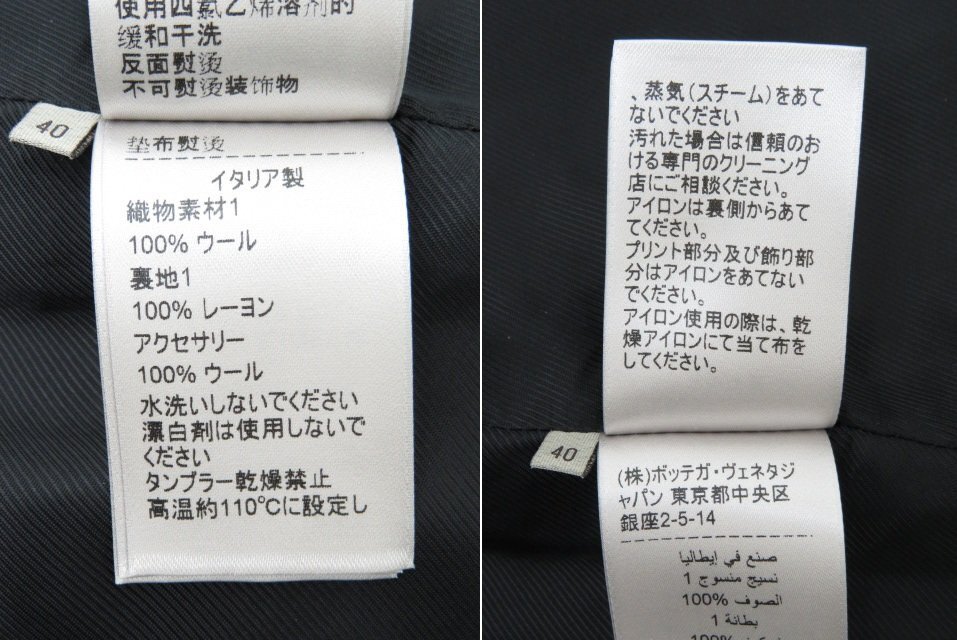 使用四氯乙烯溶剂的
缓和干洗
反面熨烫
不可熨烫装饰物
40
垫布熨烫
イタリア製
織物素材1
100% ウール
裏地1
100% レーヨン
アクセサリー
100% ウール
水洗いしないでください
漂白剤は使用しないで
ください
タンブラー乾燥禁止
高温約110℃に設定し
、蒸気(スチーム)をあて
ないでください
汚れた場合は信頼のお
ける専門のクリーニング
店にご相談ください。
アイロンは裏側からあて
てください。
プリント部分及び飾り部
分はアイロンをあてない
でください。
アイロン使用の際は、乾
燥アイロンにて当て布を
してください。
40
(株)ボッテガ・ヴェネタジ
ャパン 東京都中央区
銀座2-5-14
صنع في إيطاليا
نسيج منسوج 1
100% الصوف
بطانة 1